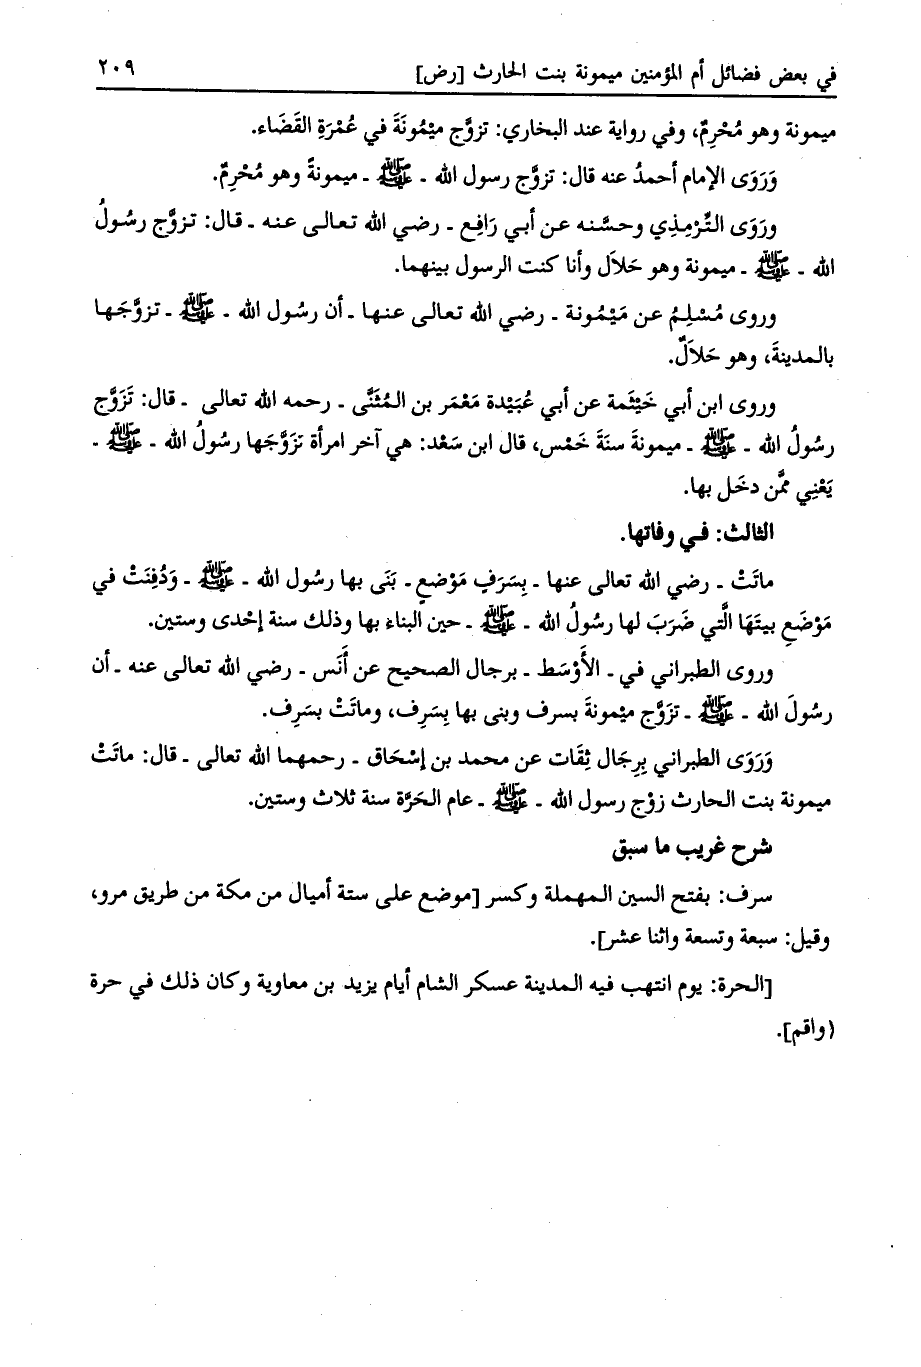 في بعض فضائل أم المؤمنين ميمونة بنت الحارث [رض] ٢٠٩
ميمونة وهو مُحْرِمٌ، وفي رواية عند البخاري: تزوَّج ميْمُونَةَ في عُمْرَةِ القَضَاء.
وَرَوَى الإمام أحمدُ عنه قال: تزوَّج رسول الله ـ ﷺ ـ ميمونةً وهو مُحْرِمٌ.
ورَوَى التِّرْمِذِي وحسَّنه عن أبي رَافِع ـ رضي الله تعالى عنه ـ قال: تزوَّج رسُولُ
الله ـ ﷺ ـ ميمونة وهو حَلاَل وأنا كنت الرسول بينهما.
وروى مُسْلِمُ عن مَيْمُونة ـ رضي الله تعالى عنها ـ أن رسُول الله ـ ﷺ ـ تزوَّجَها
بالمدينةَ، وهو حَلاَلٌ.
وروى ابن أبي خَيْثَمة عن أبي عُبَيْدة مَعْمَر بن المُثَنَّى ـ رحمه الله تعالى ـ قال: تَزَوَّج
رسُولُ الله ـ ﷺ ـ ميمونةَ سنَةَ خَمْس، قال ابن سَعْد: هي آخر امرأة تزوَّجَها رسُولُ الله ـ ﷺ ـ
يَعْنِي ممَّن دخَل بها.
الثالث: في وفاتها.
ماتَتْ ـ رضي الله تعالى عنها ـ بِسَرَفٍ مَوْضعٍ ـ بَنَى بها رسُول الله ـ ﷺ ـ وَدُفِنَتْ في
مَوْضَعِ بيتَهَا الَّتي ضَرَبَ لها رسُولُ الله ـ ﷺ ـ حين البناء بها وذلك سنة إحْدى وستين.
وروى الطبراني في ـ الأَوْسَط ـ برجال الصحيح عن أَنَس ـ رضي الله تعالى عنه ـ أن
رسُولَ الله ـ ﷺ ـ تزوَّج ميْمونةَ بسرف وبنى بها بِسَرِف، وماتَتْ بسَرِف.
وَرَوَى الطبراني بِرِجَال ثِقَات عن محمد بن إسْحَاق ـ رحمهما الله تعالى ـ قال: ماتَتْ
ميمونة بنت الحارث زوْج رسول الله ـ ﷺ ـ عام الحَرَّة سنة ثلاث وستين.
شرح غريب ما سبق
سرف: بفتح السين المهملة وكسر [موضع على ستة أميال من مكة من طريق مرو،
وقيل: سبعة وتسعة واثنا عشر].
[الحرة: يوم انتهب فيه المدينة عسكر الشام أيام يزيد بن معاوية وكان ذلك في حرة
(واقم].